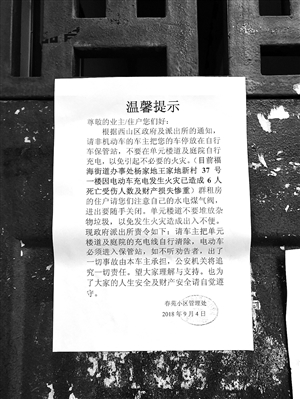 温馨提示
尊敬的业主/住户您们好:
根据西山区政府及派出所的通知,
请非机动车的车主把您的车停放在自行
车保管站,不要在单元楼道及庭院自行
充电,以免引起不必要的火灾。(目前福
海街道办事处杨家地王家地新村 37 号
一楼因电动车充电发生火灾已造成 6 人
死亡受伤人数及财产损失惨重)群租房
的住户请您们注意自己的水电煤气阀,
进出要随手关闭。单元楼道不要堆放杂
物垃圾,以免发生火灾造成出入不便。
现政府派出所责令如下:请车主把单元
楼道及庭院的充电线自行清除。电动车
必须进入保管站,如不听劝告者,出了
一切事故由本车主承担,公安机关将追
究一切责任。望大家理解与支持。也为
了大家的人生安全及财产安全请自觉遵
守。
春苑小区管理处
2018 年 9 月 4 日